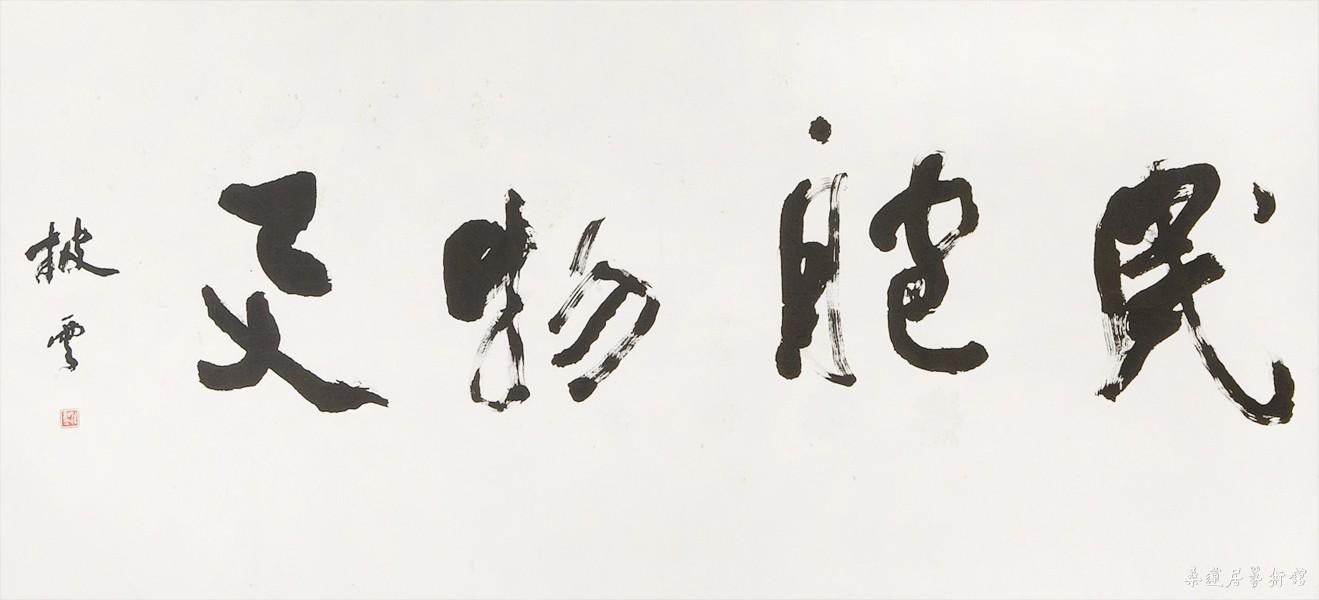 民胞物與
披雲
桑蓮居藝術館